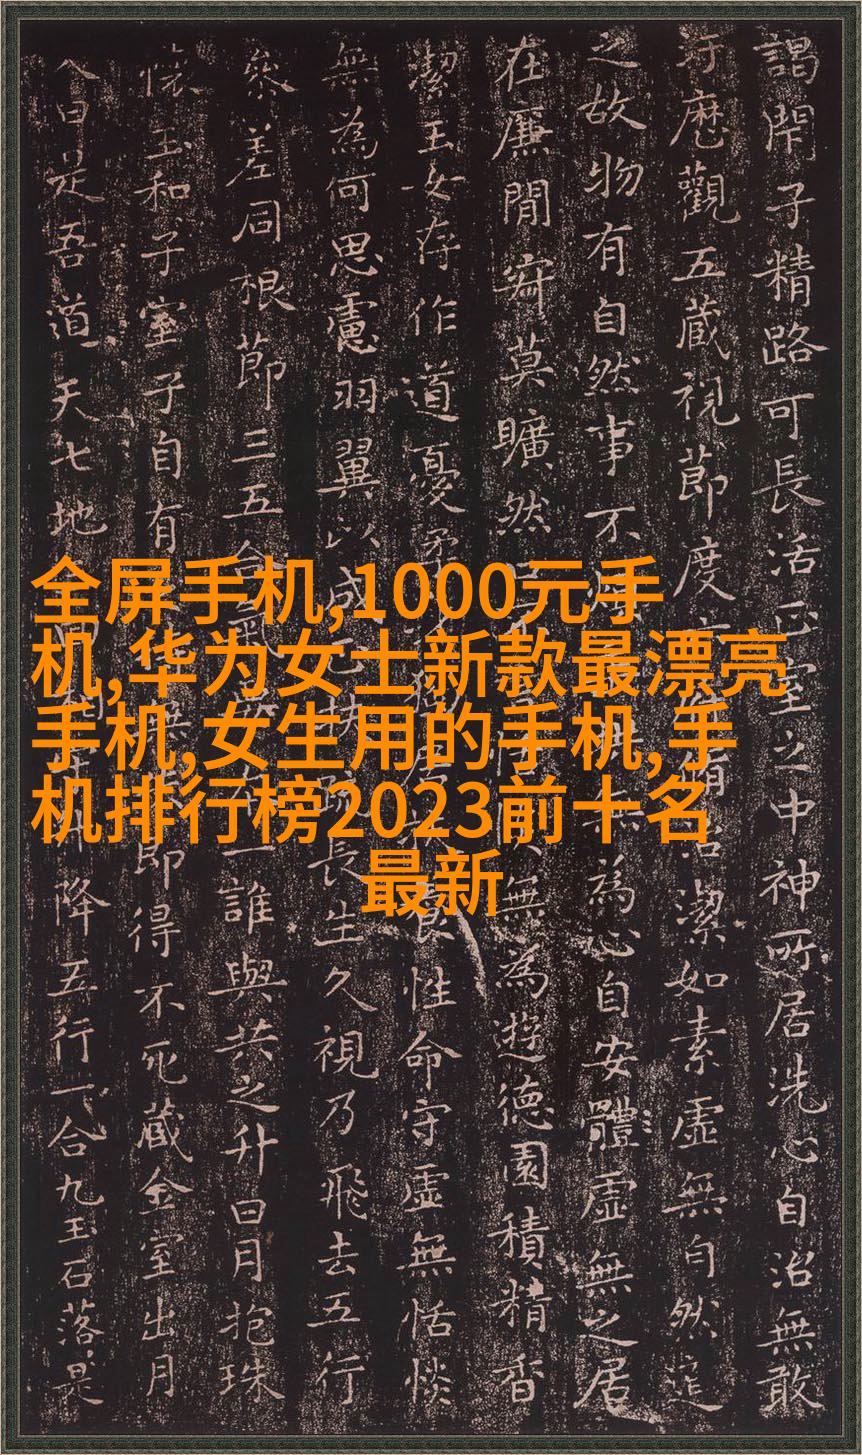 謁閇子精路可長活正室之中神所居洗心自治無敢
污歷觀五藏視節度 治潔如素虛無自然道
之故物有自然事不 無為心自安體虛無之居
在廉閒寂莫曠然 無為遊德園積精香
潔玉女存作道憂柔 獨居 養性命守虛無恬惔
無為何思慮羽翼以成 長生久視乃飛去五行
參差同根節三五合氣 一誰與共之升日月抱珠
懷玉和子室子自有 即得不死藏金室出月
入日是吾道天七地 升降五行一合九玉石落是
全屏手机,1000元手
机,华为女士新款最漂亮
手机,女生用的手机,手
机排行榜2023前十名
最新